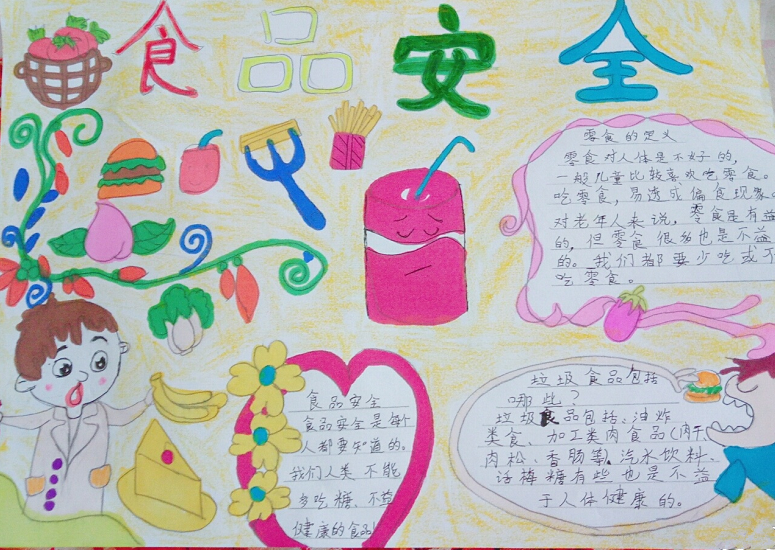 食品安全
零食的定义
零食对人体是不好的,
一般儿童比较喜欢吃零食。
吃零食,易造成偏食现象
对老年人来说,零食是有益
的,但零食很多也是不益
的。我们都要少吃或不
吃零食。
食品安全
食品安全是每个
人都要知道的。
我们人类不能
多吃糖、不益
健康的食品!
垃圾食品包括
哪些?
垃圾食品包括:油炸
类食、加工类肉食品(肉干、
肉松、香肠等)、汽水饮料、
话梅糖有些也是不益
于人体健康的。